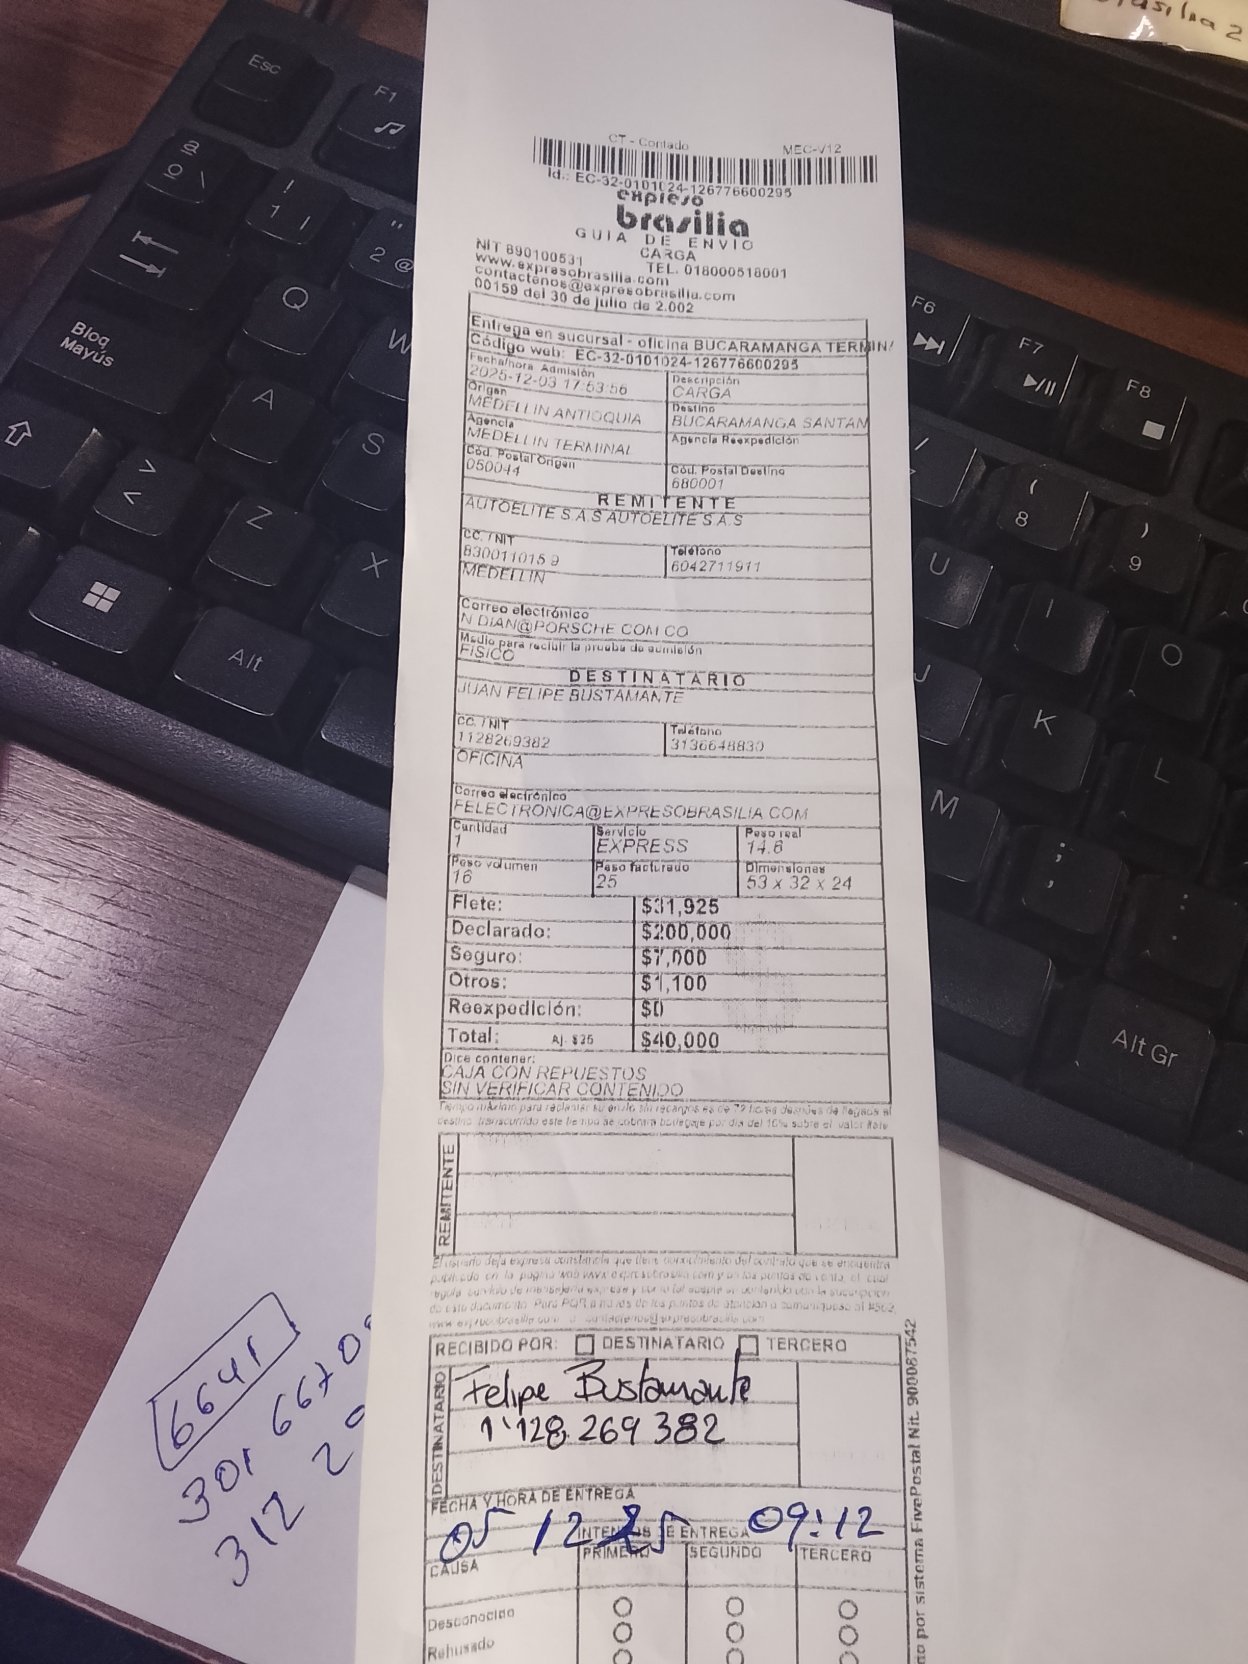 CT - Contado MEC-V12
Id.: EC-32-0101024-126776600295
expreso
brasilia
GUIA DE ENVIO
NIT 890100531 CARGA
www.expresobrasilia.com TEL. 018000518001
contactenos@expresobrasilia.com
00159 del 30 de julio de 2.002
Entrega en sucursal - oficina BUCARAMANGA TERMIN
Código web: EC-32-0101024-126776600295
Fecha/hora Admisión Descripción
2025-12-03 17:53:56 CARGA
Origen Destino
MEDELLIN ANTIOQUIA BUCARAMANGA SANTAN
Agencia Agencia Reexpedición
MEDELLIN TERMINAL
Cód. Postal Origen Cód. Postal Destino
050044 680001
REMITENTE
AUTOELITE S.A.S AUTOELITE S.A.S
CC. / NIT Teléfono
830011015 9 6042711911
MEDELLIN
Correo electrónico
N DIAN@PORSCHE.COM.CO
Medio para recibir la prueba de admisión
FISICO
DESTINATARIO
JUAN FELIPE BUSTAMANTE
CC. / NIT Teléfono
1128269382 3136648830
OFICINA
Correo electrónico
FELECTRONICA@EXPRESOBRASILIA.COM
Cantidad Servicio Peso real
1 EXPRESS 14.6
Peso volumen Peso facturado Dimensiones
16 25 53 x 32 x 24
Flete: $31,925
Declarado: $200,000
Seguro: $7,000
Otros: $1,100
Reexpedición: $0
Total: Aj. $25 $40,000
Dice contener:
CAJA CON REPUESTOS
SIN VERIFICAR CONTENIDO
Tiempo máximo para reclamar su envío sin recargos es de 72 horas después de llegado al
destino, transcurrido este tiempo se cobrará bodegaje por día del 10% sobre el valor flete
REMITENTE
RECIBIDO POR: DESTINATARIO TERCERO
DESTINATARIO
Felipe Bustamante
1'128 269 382
FECHA Y HORA DE ENTREGA
05 12 25 09:12
INTENTOS DE ENTREGA
CAUSA PRIMERO SEGUNDO TERCERO
Desconocido
Rehusado
no por sistema FivePostal Nit. 900087542
6641
301 66
312 2
Esc
F1
F6
F7
F8
Q
W
A
S
Z
X
U
I
O
J
K
L
M
8
9
Bloq
Mayús
Alt
Alt Gr